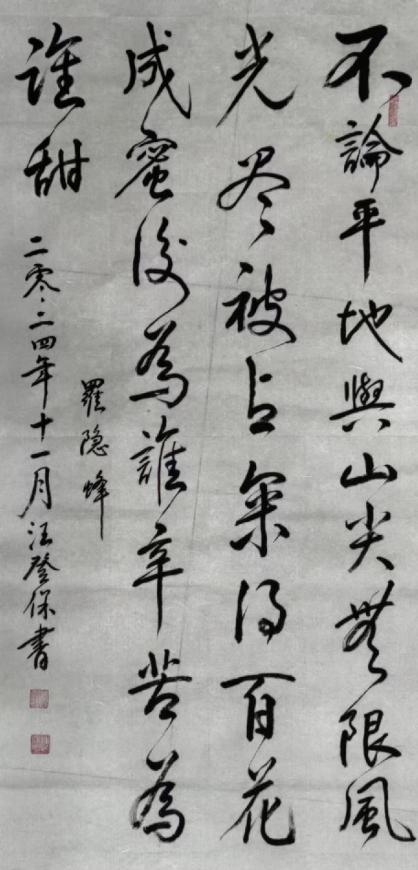 不論平地與山尖無限風
光尽被占采得百花
成蜜後為誰辛苦為
誰甜
羅隐蜂
二零二四年十一月汪登保書